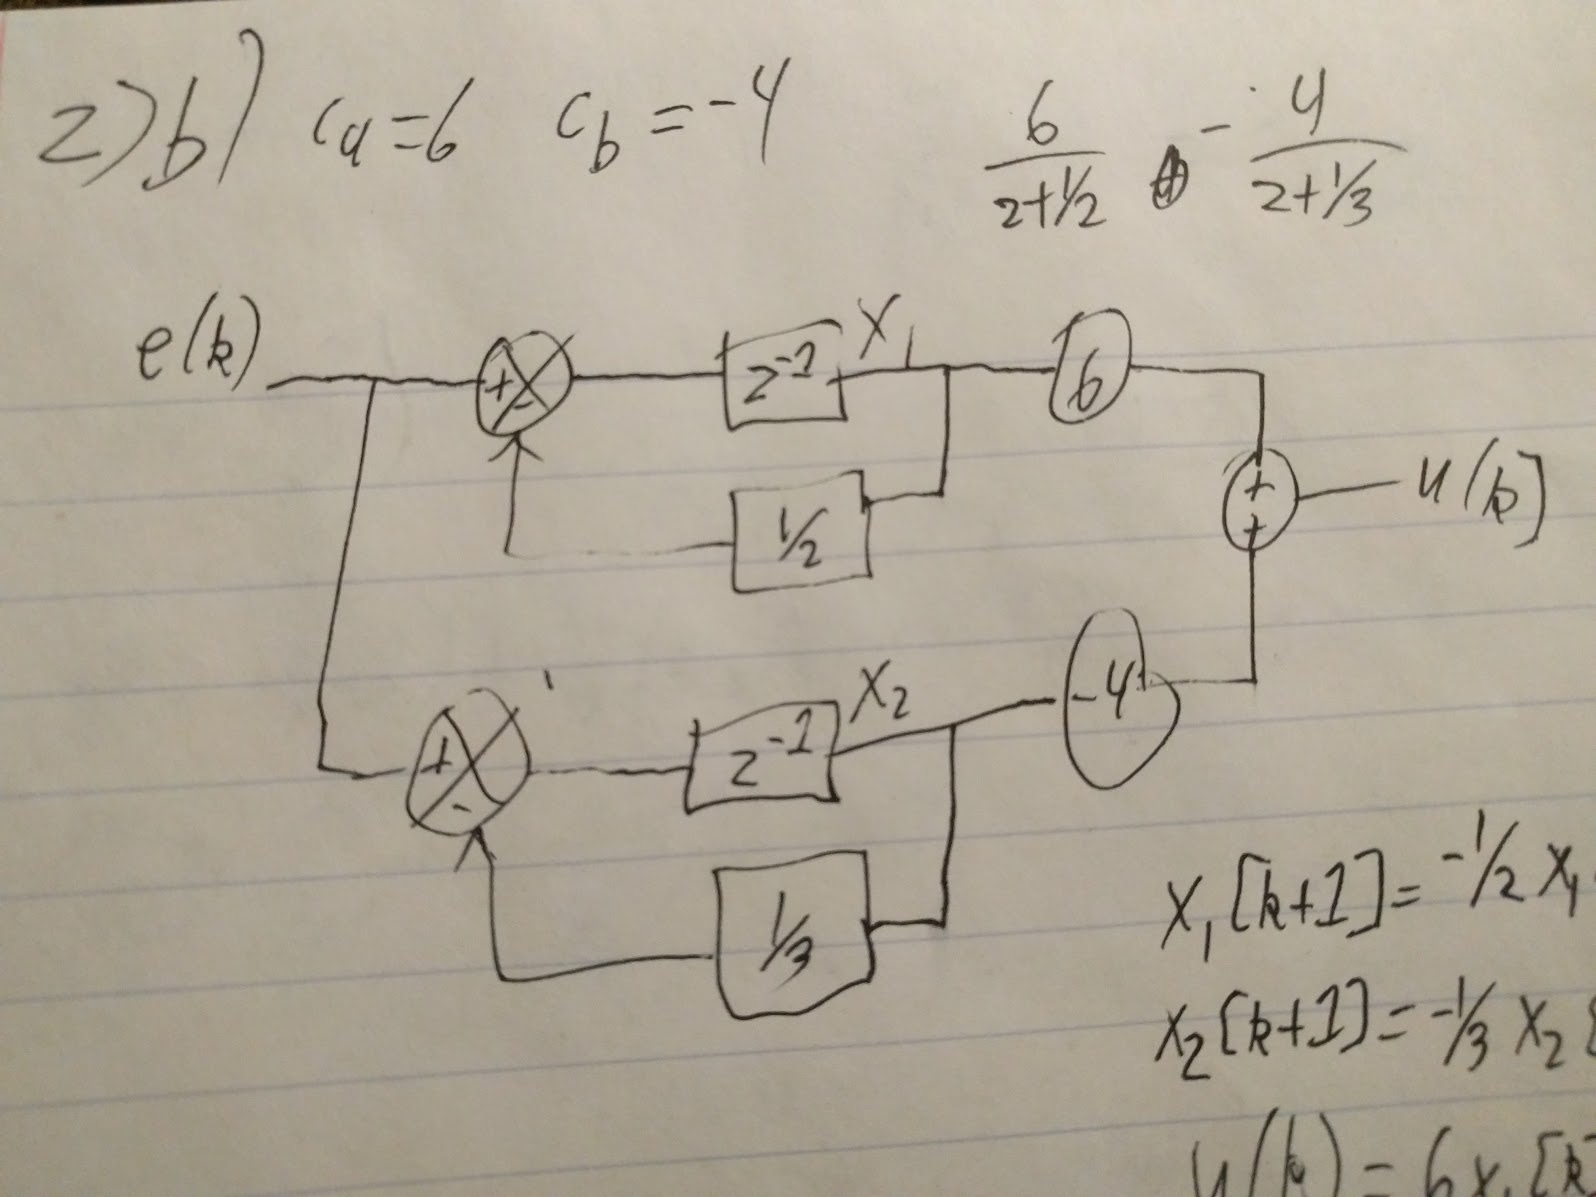 2)b) ca=6 cb=-4 6/(z+1/2) - 4/(z+1/3)
e(k) + - z^-1 x1 6
1/2
+ + u(k)
+ - z^-1 x2 -4
1/3
x1[k+1]=-1/2 x1
x2[k+1]=-1/3 x2[
u(k)=6x1[k]